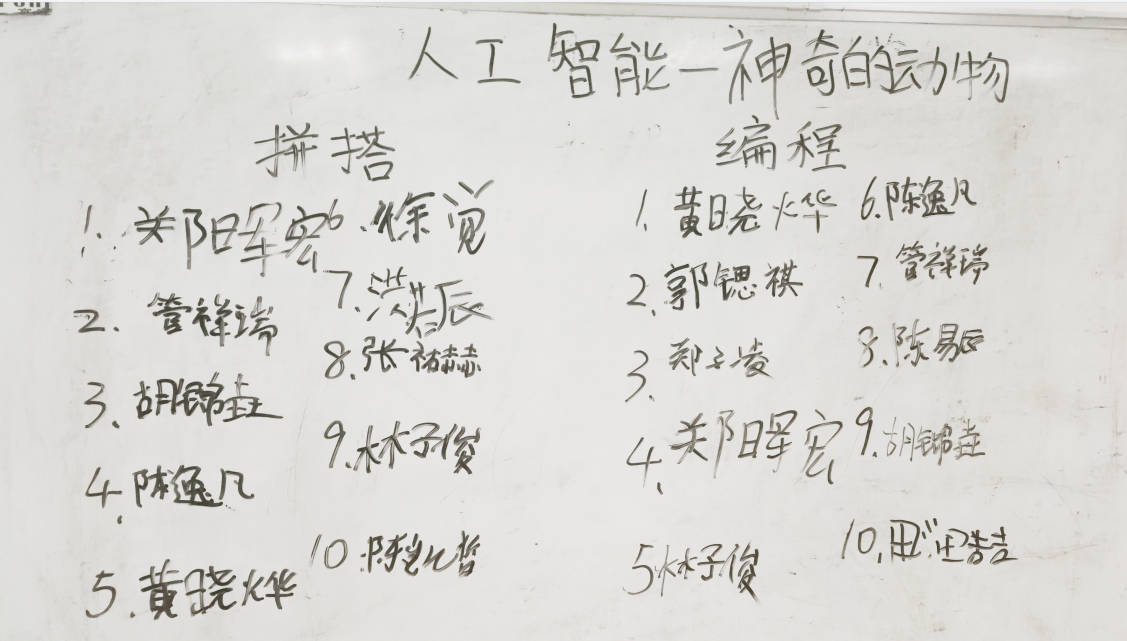 人工智能一神奇的动物
拼搭
1. 郑阳晖宏
2. 管祥瑞
3. 胡锦垚
4. 陈逸凡
5. 黄晓烨
6. 徐觉
7. 洪
8. 张祐赫
9. 林子俊
10. 陈
编程
1. 黄晓烨
2. 郭锶祺
3. 郑子凌
4. 郑阳晖宏
5. 林子俊
6. 陈逸凡
7. 管祥瑞
8. 陈易辰
9. 胡锦垚
10.